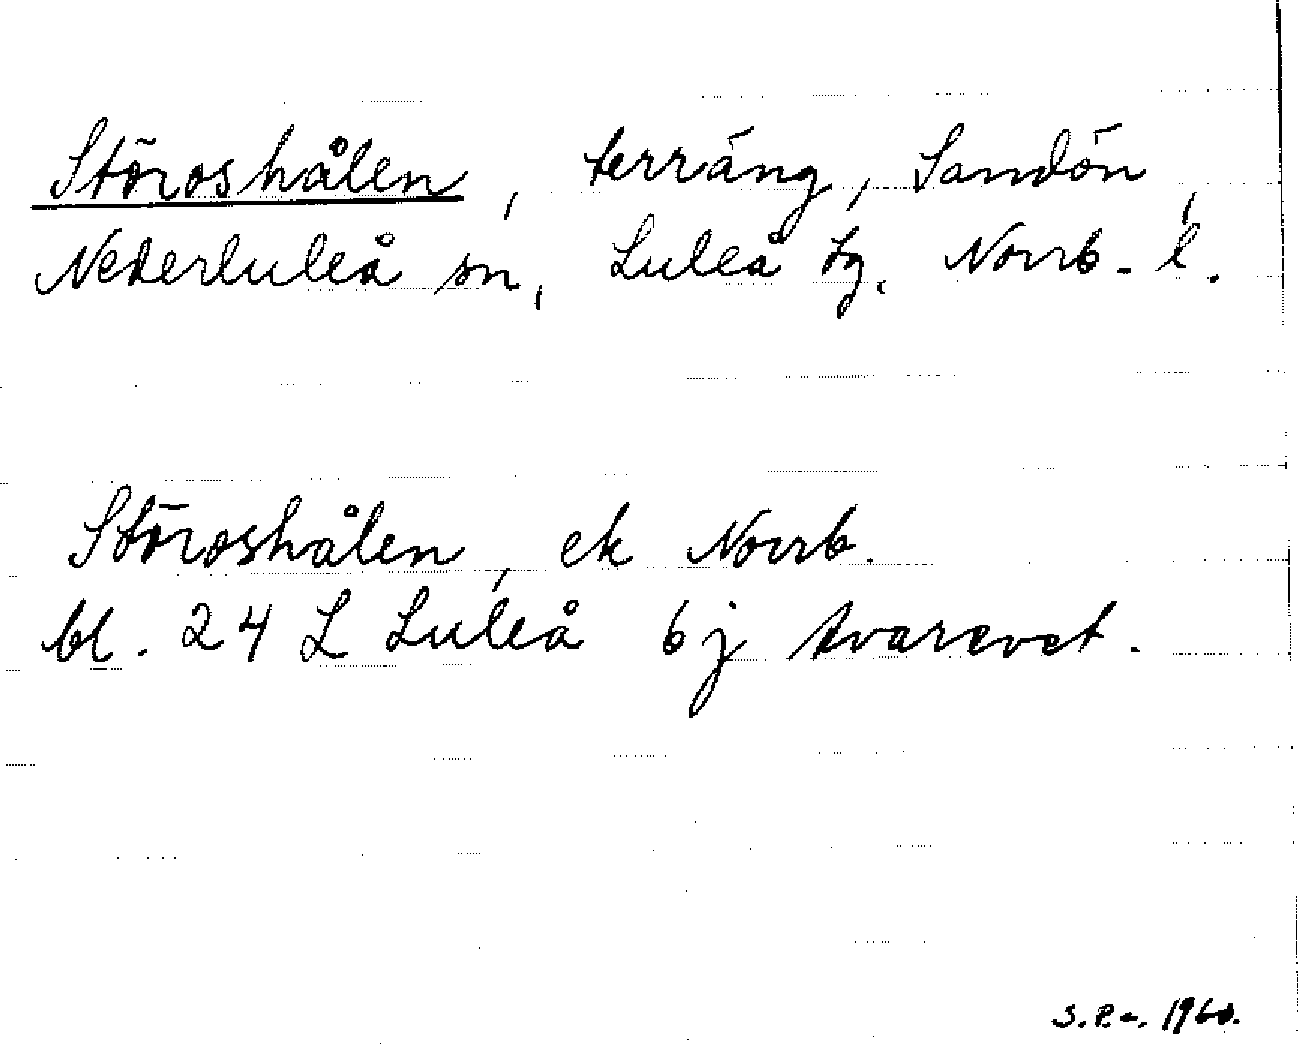 Störoshålen, terräng, Sandön,
Nederluleå sn, Luleå tg. Norrb. l.
Störoshålen, ek Norrb.
bl. 24 L Luleå 6j Avarevet.
1960.